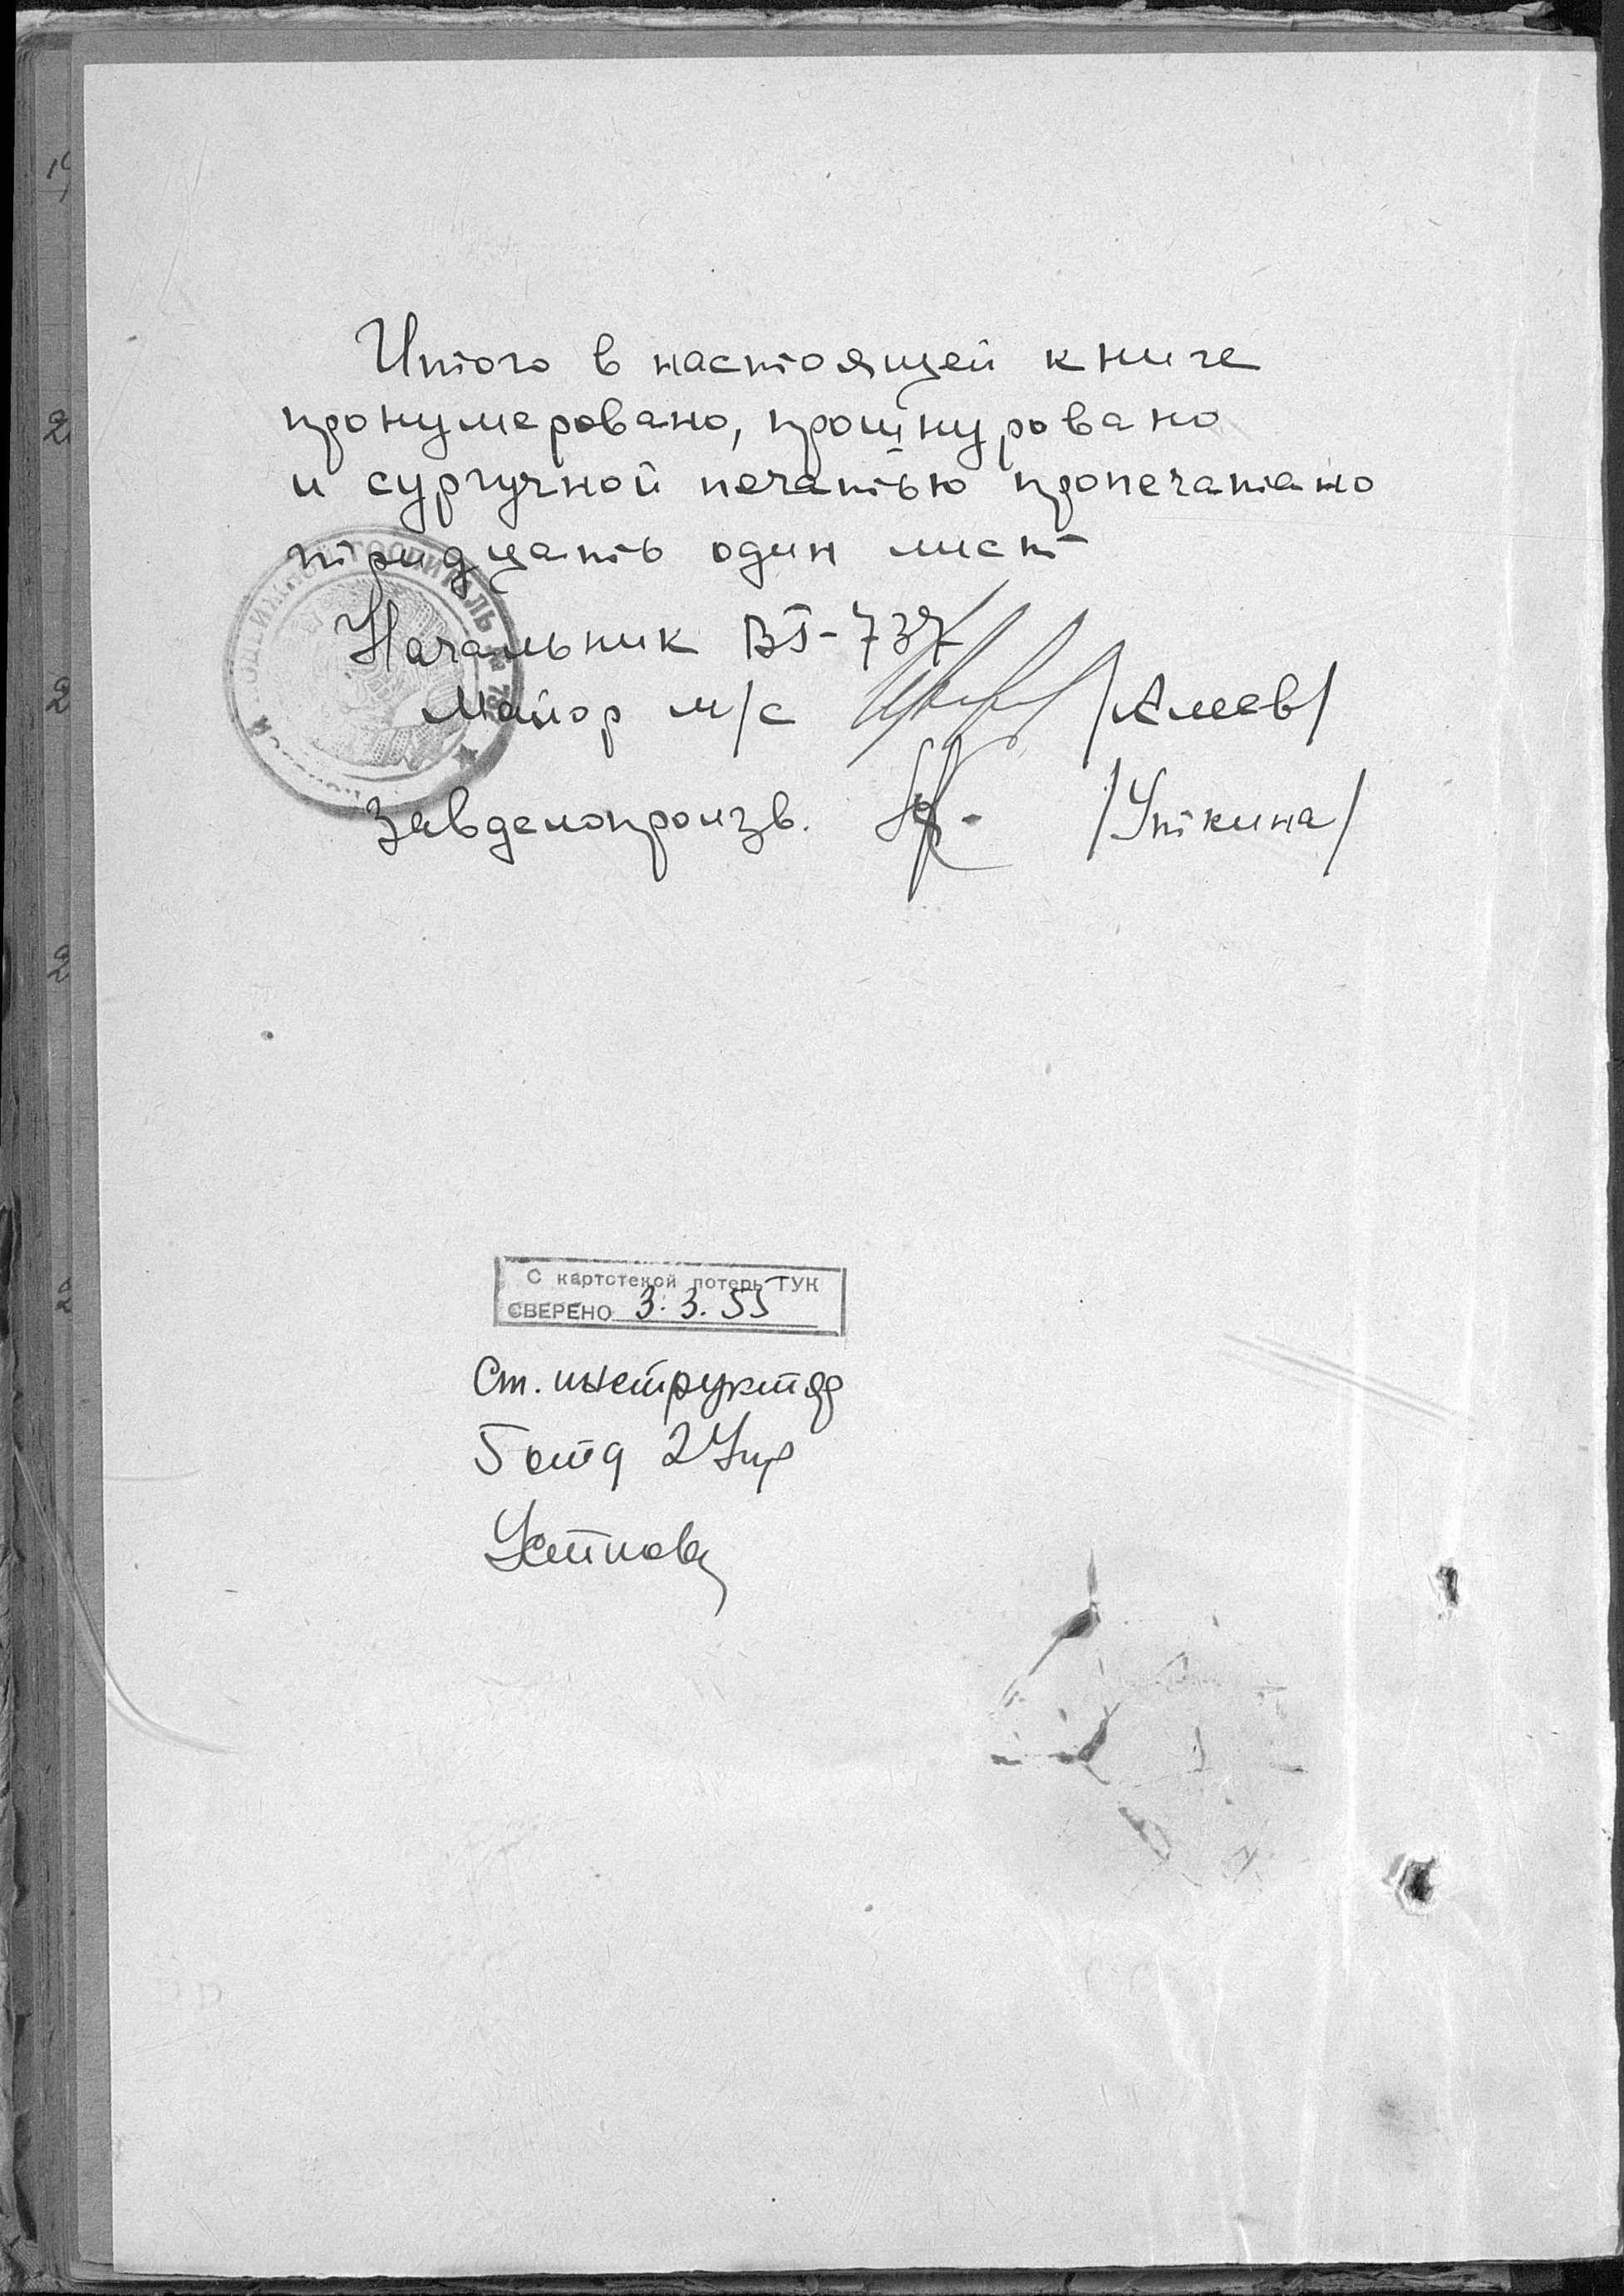 Итого в настоящей книге
пронумеровано, прошнуровано
и сургучной печатью пропечатано
тридцать один лист
Начальник ВГ-737
Майор м/с /Алеев/
Завделопроизв. /Уткина/
ГОСПИТАЛЬ
С картотекой потерь ГУК
СВЕРЕНО 3.3.55
Ст. инструктор
5 отд 2 Упр
Устинова